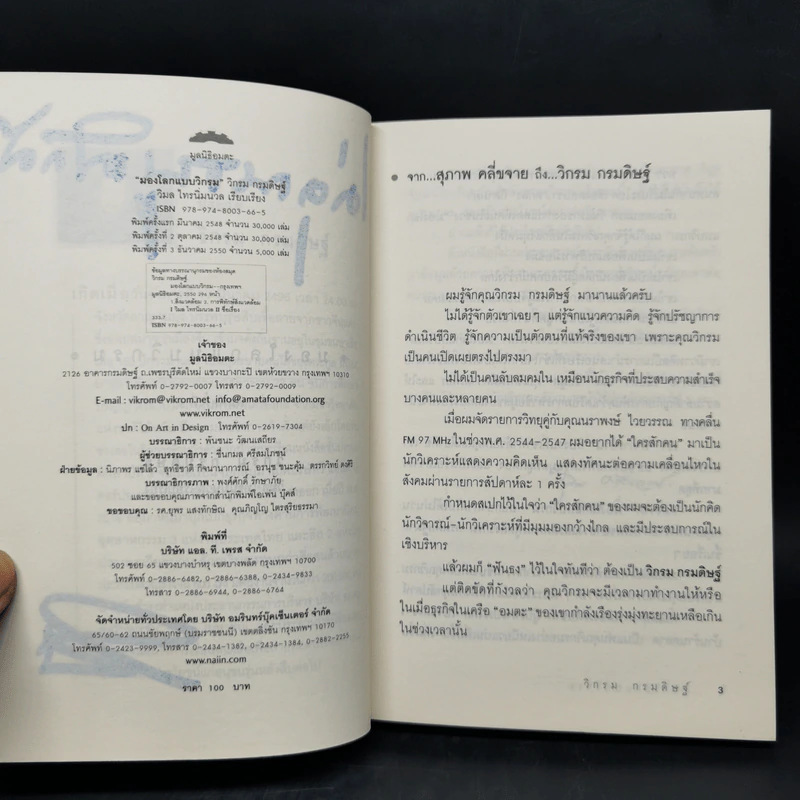 มูลนิธิอมตะ
"มองโลกแบบวิกรม" วิกรม กรมดิษฐ์
วิมล ไทรนิ่มนวล เรียบเรียง
ISBN 978-974-8003-66-5
พิมพ์ครั้งแรก มีนาคม 2548 จำนวน 30,000 เล่ม
พิมพ์ครั้งที่ 2 ตุลาคม 2548 จำนวน 30,000 เล่ม
พิมพ์ครั้งที่ 3 ธันวาคม 2550 จำนวน 5,000 เล่ม
ข้อมูลทางบรรณานุกรมของห้องสมุด
วิกรม กรมดิษฐ์
มองโลกแบบวิกรม--กรุงเทพฯ
มูลนิธิอมตะ, 2550 296 หน้า
1.สิ่งแวดล้อม 2. การพิทักษ์สิ่งแวดล้อม
I วิมล ไทรนิ่มนวล II ชื่อเรื่อง
333.7
ISBN 978-974-8003-66-5
เจ้าของ
มูลนิธิอมตะ
2126 อาคารกรมดิษฐ์ ถ.เพชรบุรีตัดใหม่ แขวงบางกะปิ เขตห้วยขวาง กรุงเทพฯ 10310
โทรศัพท์ 0-2792-0007 โทรสาร 0-2792-0009
E-mail : vikrom@vikrom.net info@amatafoundation.org
www.vikrom.net
ปก : On Art in Design โทรศัพท์ 0-2619-7304
บรรณาธิการ : พันชนะ วัฒนเสถียร
ผู้ช่วยบรรณาธิการ : ชื่นกมล ศรีสมโภชน์
ฝ่ายข้อมูล : นิภาพร แซ่ไล้ว สุทธิชาติ กิจนานาการณ์ อรนุช ชนะคุ้ม ดรรกวิทย์ คงศิริ
บรรณาธิการภาพ : พงศ์ศักดิ์ รักษาภัย
และขอขอบคุณภาพจากสำนักพิมพ์โอเพ่น บุ๊คส์
ขอขอบคุณ : รศ.ยุพร แสงทักษิณ คุณภิญโญ ไตรสุริยธรรมา
พิมพ์ที่
บริษัท แอล. ที. เพรส จำกัด
502 ซอย 65 แขวงบางบำหรุ เขตบางพลัด กรุงเทพฯ 10700
โทรศัพท์ 0-2886-6482, 0-2886-6388, 0-2434-9833
โทรสาร 0-2886-6944, 0-2886-6764
จัดจำหน่ายทั่วประเทศโดย บริษัท อมรินทร์บุ๊คเซ็นเตอร์ จำกัด
65/60-62 ถนนชัยพฤกษ์ (บรมราชชนนี) เขตตลิ่งชัน กรุงเทพฯ 10170
โทรศัพท์ 0-2423-9999, โทรสาร 0-2434-1382, 0-2434-1384, 0-2882-2255
www.naiin.com
ราคา 100 บาท
จาก...สุภาพ คลี่ขจาย ถึง...วิกรม กรมดิษฐ์
ผมรู้จักคุณวิกรม กรมดิษฐ์ มานานแล้วครับ
ไม่ได้รู้จักตัวเขาเฉยๆ แต่รู้จักแนวความคิด รู้จักปรัชญาการ
ดำเนินชีวิต รู้จักความเป็นตัวตนที่แท้จริงของเขา เพราะคุณวิกรม
เป็นคนเปิดเผยตรงไปตรงมา
ไม่ได้เป็นคนลับลมคมใน เหมือนนักธุรกิจที่ประสบความสำเร็จ
บางคนและหลายคน
เมื่อผมจัดรายการวิทยุคู่กับคุณนราพงษ์ ไวยวรรณ ทางคลื่น
FM 97 MHz ในช่วงพ.ศ. 2544-2547 ผมอยากได้ "ใครสักคน" มาเป็น
นักวิเคราะห์แสดงความคิดเห็น แสดงทัศนะต่อความเคลื่อนไหวใน
สังคมผ่านรายการสัปดาห์ละ 1 ครั้ง
กำหนดสเปกไว้ในใจว่า "ใครสักคน" ของผมจะต้องเป็นนักคิด
นักวิจารณ์-นักวิเคราะห์ที่มีมุมมองกว้างไกล และมีประสบการณ์ใน
เชิงบริหาร
แล้วผมก็ "ฟันธง" ไว้ในใจทันทีว่า ต้องเป็น วิกรม กรมดิษฐ์
แต่ติดขัดที่กังวลว่า คุณวิกรมจะมีเวลามาทำงานให้หรือ
ในเมื่อธุรกิจในเครือ "อมตะ" ของเขากำลังเรืองรุ่งพุ่งทะยานเหลือเกิน
ในช่วงเวลานั้น
วิกรม กรมดิษฐ์ 3